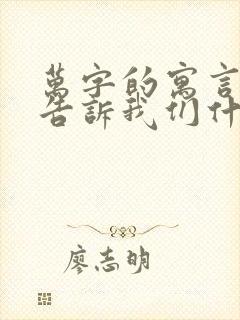 萬字的寓言
告訴我们什
廖志明